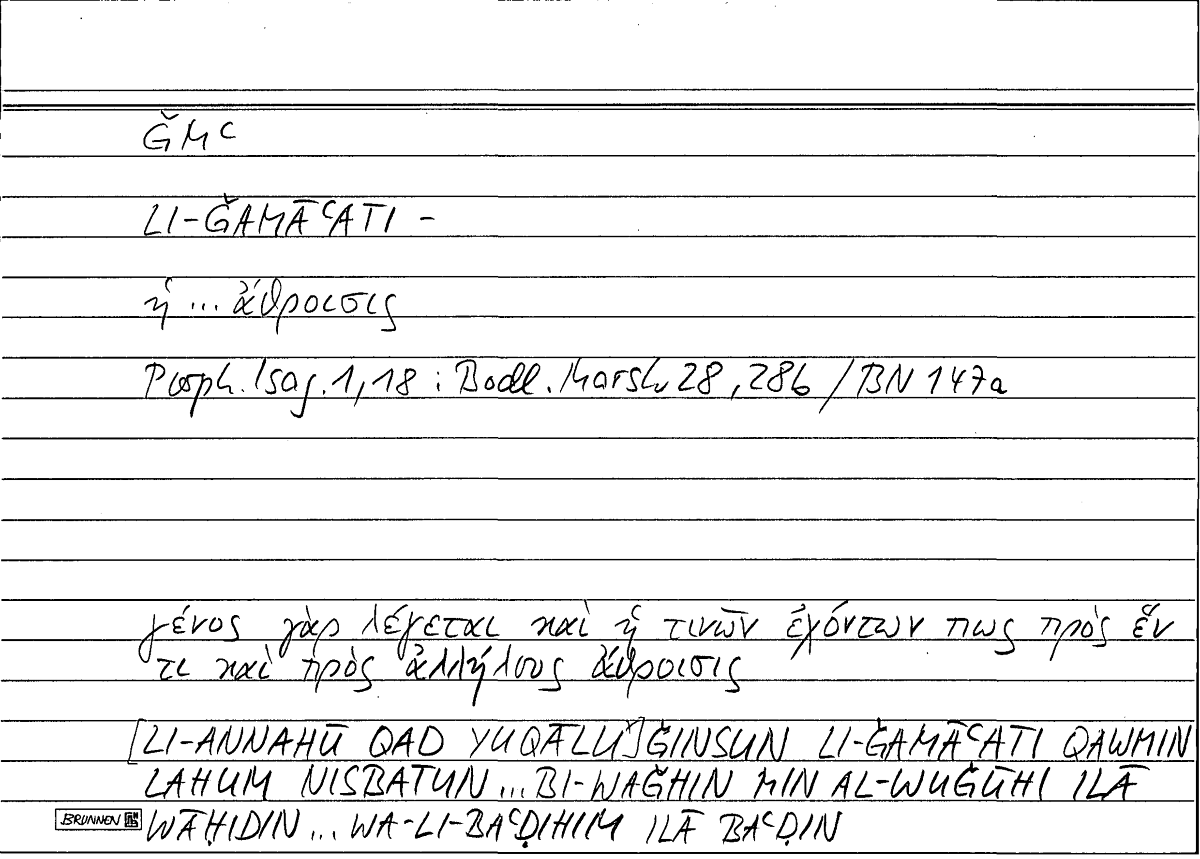 ǦMʿ
LI-ǦAMĀʿATI -
ἡ ... ἄθροισις
Porph. Isag. 1,18 : Bodl. Marsh. 28, 28b / BN 147a
γένος γὰρ λέγεται καὶ ἡ τινῶν ἐχόντων πως πρὸς ἕν
τι καὶ πρὸς ἀλλήλους ἄθροισις
[LI-ANNAHŪ QAD YUQĀLU] ǦINSUN LI-ǦAMĀʿATI QAWMIN
LAHUM NISBATUN ... BI-WAǦHIN MIN AL-WUǦŪHI ILĀ
BRUNNEN WĀḤIDIN ... WA-LI-BAʿḌIHIM ILĀ BAʿḌIN